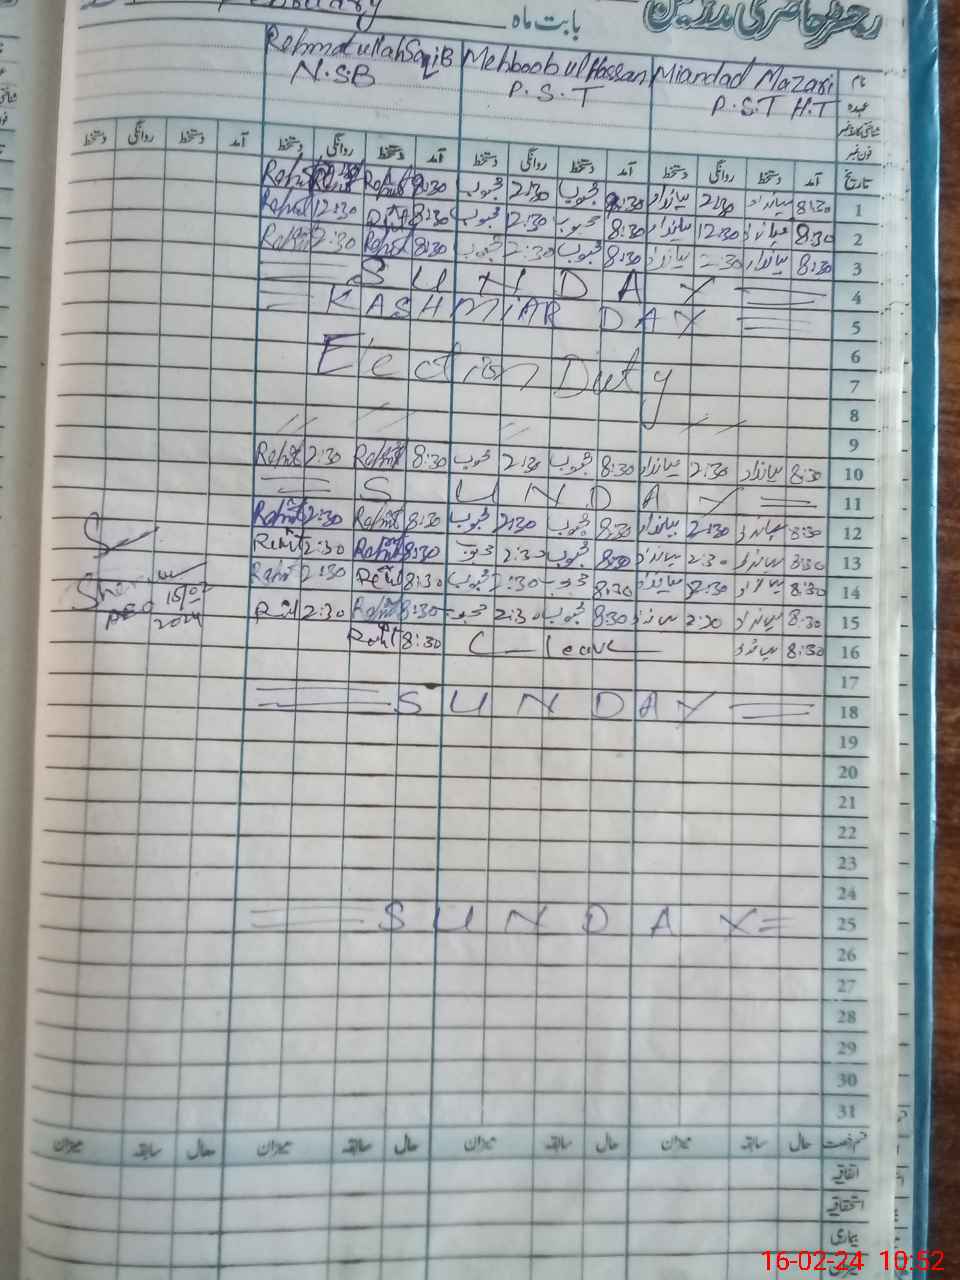 رجسٹر حاضری مدرسین
February بابت ماہ
نام Miandad Mazari Mehboob ul Hassan Rehmatullah Saqib
عہدہ P.S.T H.T P.S.T N.S.B
شناختی کارڈ نمبر
فون نمبر
تاریخ آمد دستخط روانگی دستخط آمد دستخط روانگی دستخط آمد دستخط روانگی دستخط آمد دستخط روانگی دستخط
1 8:30 میانداد 2:30 میانداد 8:30 محبوب 2:30 محبوب 8:30 Rehmt Rehmt
2 8:30 میانداد 12:30 میانداد 8:30 محبوب 12:30 محبوب 8:30 Rehmt 12:30 Rehmt
3 8:30 میانداد 2:30 میانداد 8:30 محبوب 2:30 محبوب 8:30 Rehmt 2:30 Rehmt
4 SUNDAY
5 KASHMIAR DAY
6
7 Election Duty
8
9
10 8:30 میانداد 2:30 میانداد 8:30 محبوب 2:30 محبوب 8:30 Rehmt 2:30 Rehmt
11 SUNDAY
12 8:30 میانداد 2:30 میانداد 8:30 محبوب 2:30 محبوب 8:30 Rehmt 2:30 Rehmt
13 8:30 میانداد 2:30 میانداد 8:30 محبوب 2:30 محبوب 8:30 Rehmt 2:30 Rehmt
14 8:30 میانداد 2:30 میانداد 8:30 محبوب 2:30 محبوب 8:30 Rehmt 2:30 Rehmt
15 8:30 میانداد 2:30 میانداد 8:30 محبوب 2:30 محبوب 8:30 Rehmt 2:30 Rehmt
15/02
2024
16 8:30 میانداد C-leave 8:30 Rehmt
17
18 SUNDAY
19
20
21
22
23
24
25 SUNDAY
26
27
28
29
30
31
قسم رخصت حال سابقہ میزان حال سابقہ میزان حال سابقہ میزان حال سابقہ میزان
اتفاقیہ
استحقاقیہ
بیماری
16-02-24 10:52